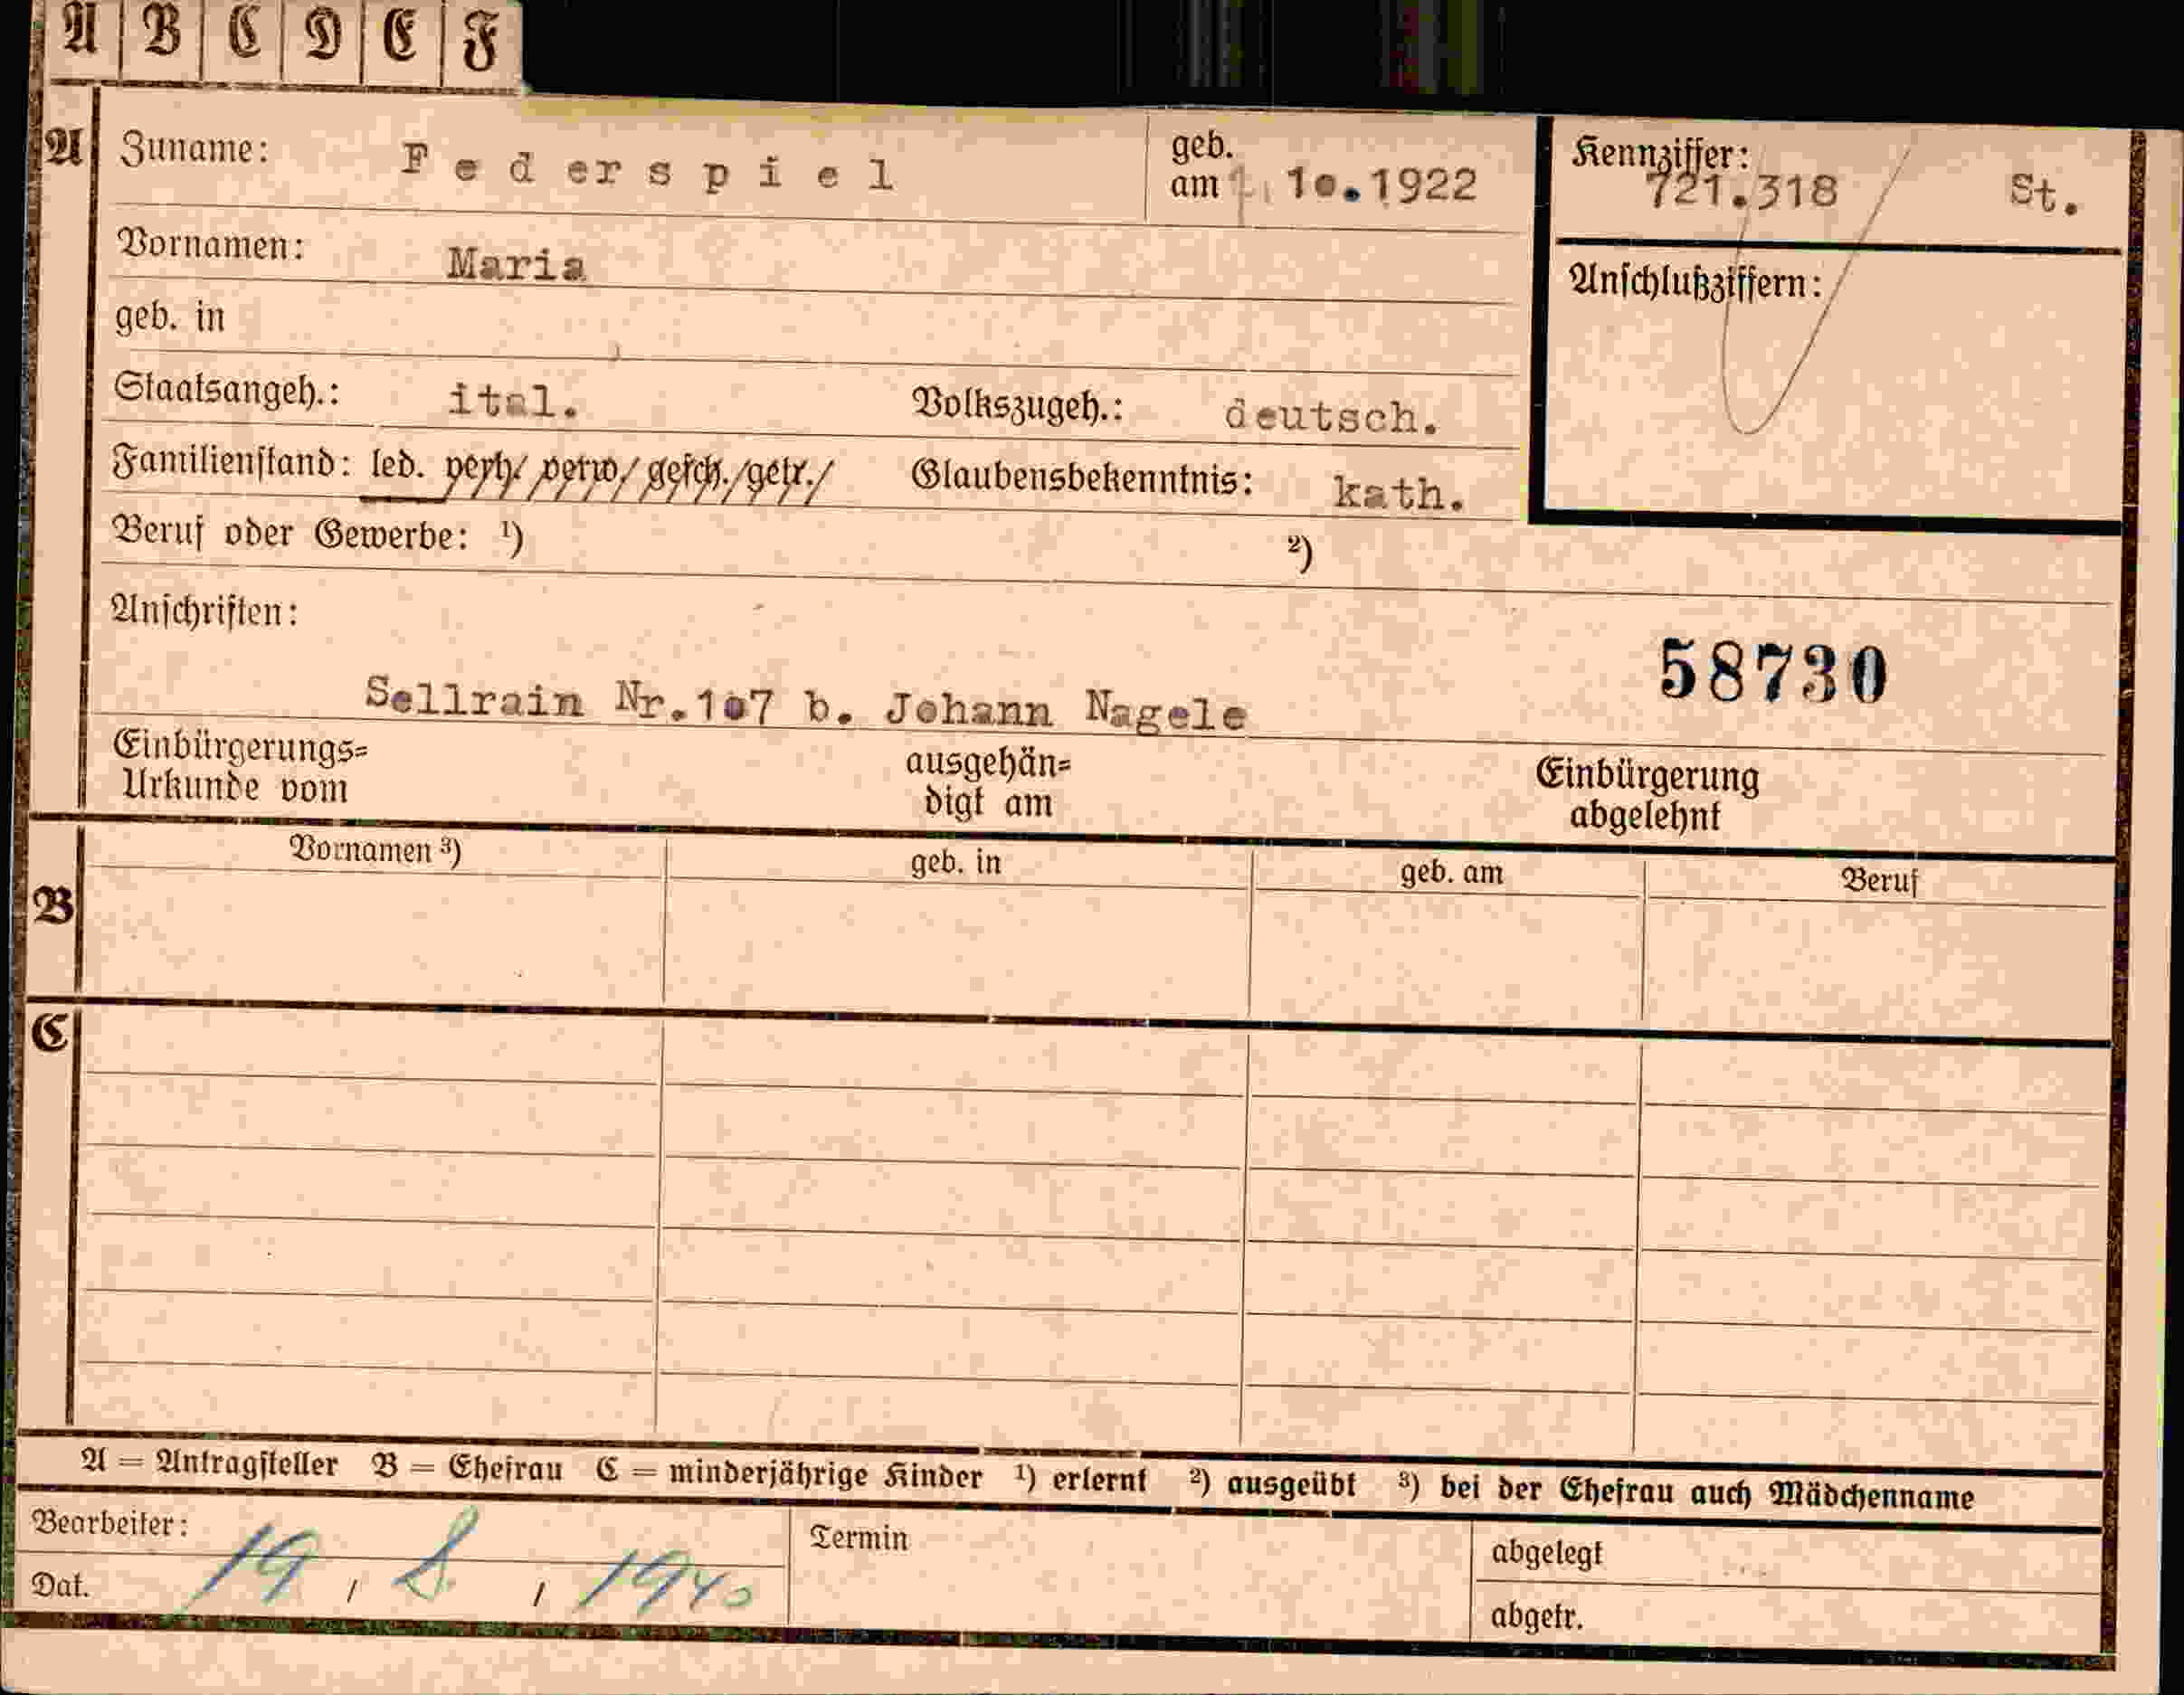 A B C D E F
A Zuname: Federspiel geb. am 1.10.1922 Kennziffer: 721.318 St.
Vornamen: Maria Anschlußziffern:
geb. in
Staatsangeh.: ital. Volkszugeh.: deutsch.
Familienstand: led. verh. verw. gesch. getr. Glaubensbekenntnis: kath.
Beruf oder Gewerbe: ¹) ²)
Anschriften:
58730
Sellrain Nr.107 b. Johann Nagele
Einbürgerungs= ausgehän= Einbürgerung
Urkunde vom digt am abgelehnt
Vornamen ³) geb. in geb. am Beruf
B
C
A = Antragsteller B = Ehefrau C = minderjährige Kinder ¹) erlernt ²) ausgeübt ³) bei der Ehefrau auch Mädchenname
Bearbeiter: Termin abgelegt
Dat. 19 / 8 / 1940 abgetr.